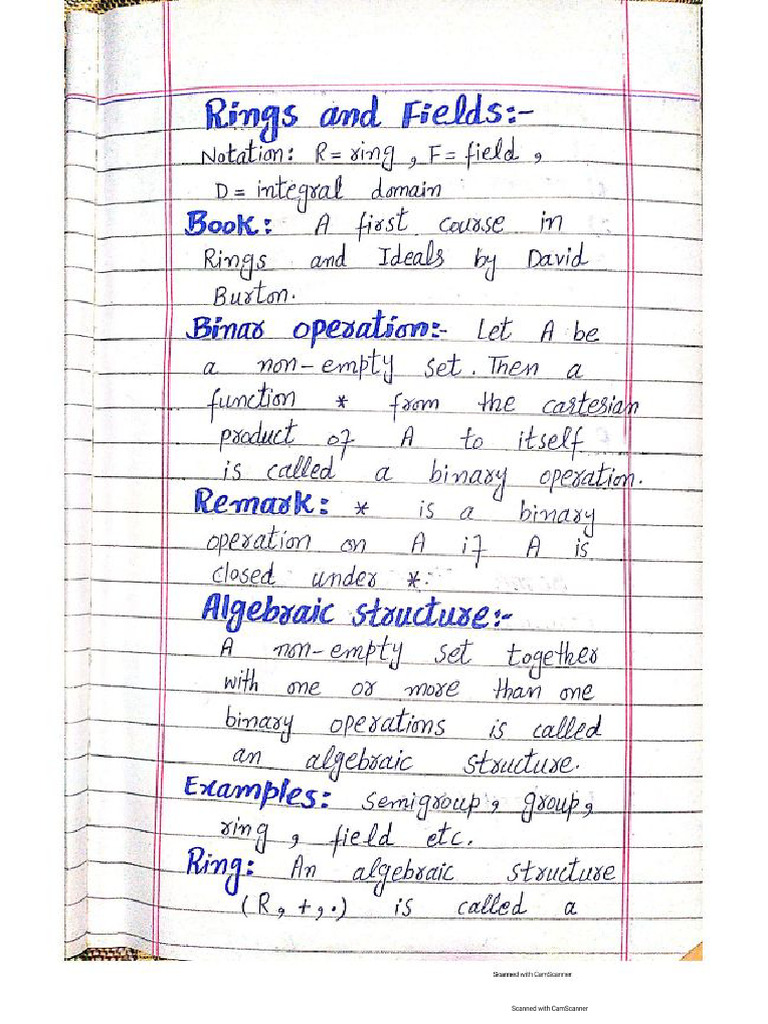 Rings and Fields:-
Notation: R = ring, F = field,
D = integral domain
Book: A first course in
Rings and Ideals by David
Burton.
Binar operation:- Let A be
a non-empty set. Then a
function * from the cartesian
product of A to itself
is called a binary operation.
Remark: * is a binary
operation on A if A is
closed under *.
Algebraic structure:-
A non-empty set together
with one or more than one
binary operations is called
an algebraic structure.
Examples: semigroup, group,
ring, field etc.
Ring: An algebraic structure
(R, +, .) is called a
Scanned with CamScanner
Scanned with CamScanner